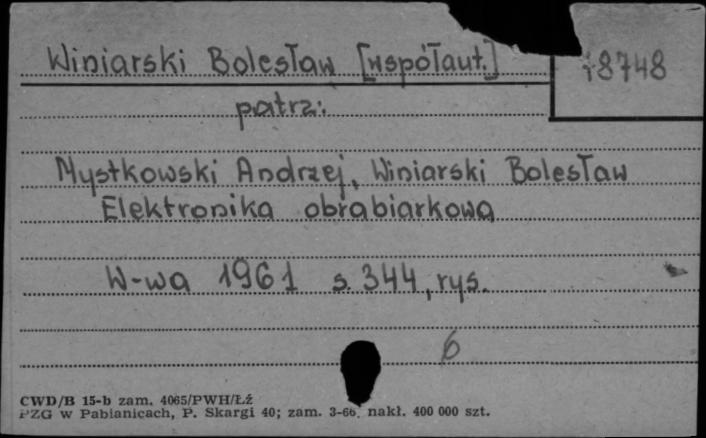 Winiarski Bolesław [współaut.]
18748
patrz:
Mystkowski Andrzej, Winiarski Bolesław
Elektronika obrabiarkowa
W-wa 1961 s. 344, rys.
6
CWD/B 15-b zam. 4065/PWH/Łź
PZG w Pabianicach, P. Skargi 40; zam. 3-66, nakł. 400 000 szt.